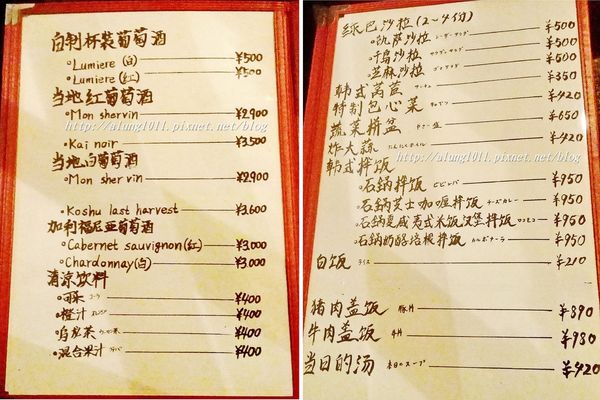 自制杯装葡萄酒
Lumiere (白) ¥500
Lumiere (红) ¥500
当地红葡萄酒
Mon shervin ¥2,900
http://alung1011.pixnet.net/blog
Kai noir ¥3,500
当地白葡萄酒
Mon shervin ¥2,900
Koshu last harvest ¥3,600
加利福尼亚葡萄酒
Cabernet sauvignon (红) ¥3,000
Chardonnay (白) ¥3,000
清凉饮料
可乐 コーラ ¥400
橙汁 ¥400
乌龙茶 ¥400
混合果汁 ¥400
巴沙拉 (2~4份)
凯萨沙拉 シーザーサラダ ¥500
千岛沙拉 ¥500
芝麻沙拉 ¥500
韩式莴苣 ¥350
特制包心菜 ¥420
蔬菜拼盆 ¥650
炸大蒜 ¥420
http://alung1011.pixnet.net/blog
韩式拌饭
石锅拌饭 ビビンバ ¥950
石锅芝士咖喱拌饭 チーズカレー ¥950
石锅夏威夷式米饭汉堡拌饭 ロコモコ ¥950
石锅奶酪培根拌饭 カルボナーラ ¥950
白饭 ライス ¥210
猪肉盖饭 豚丼 ¥890
牛肉盖饭 牛丼 ¥980
当日的汤 本日のスープ ¥420